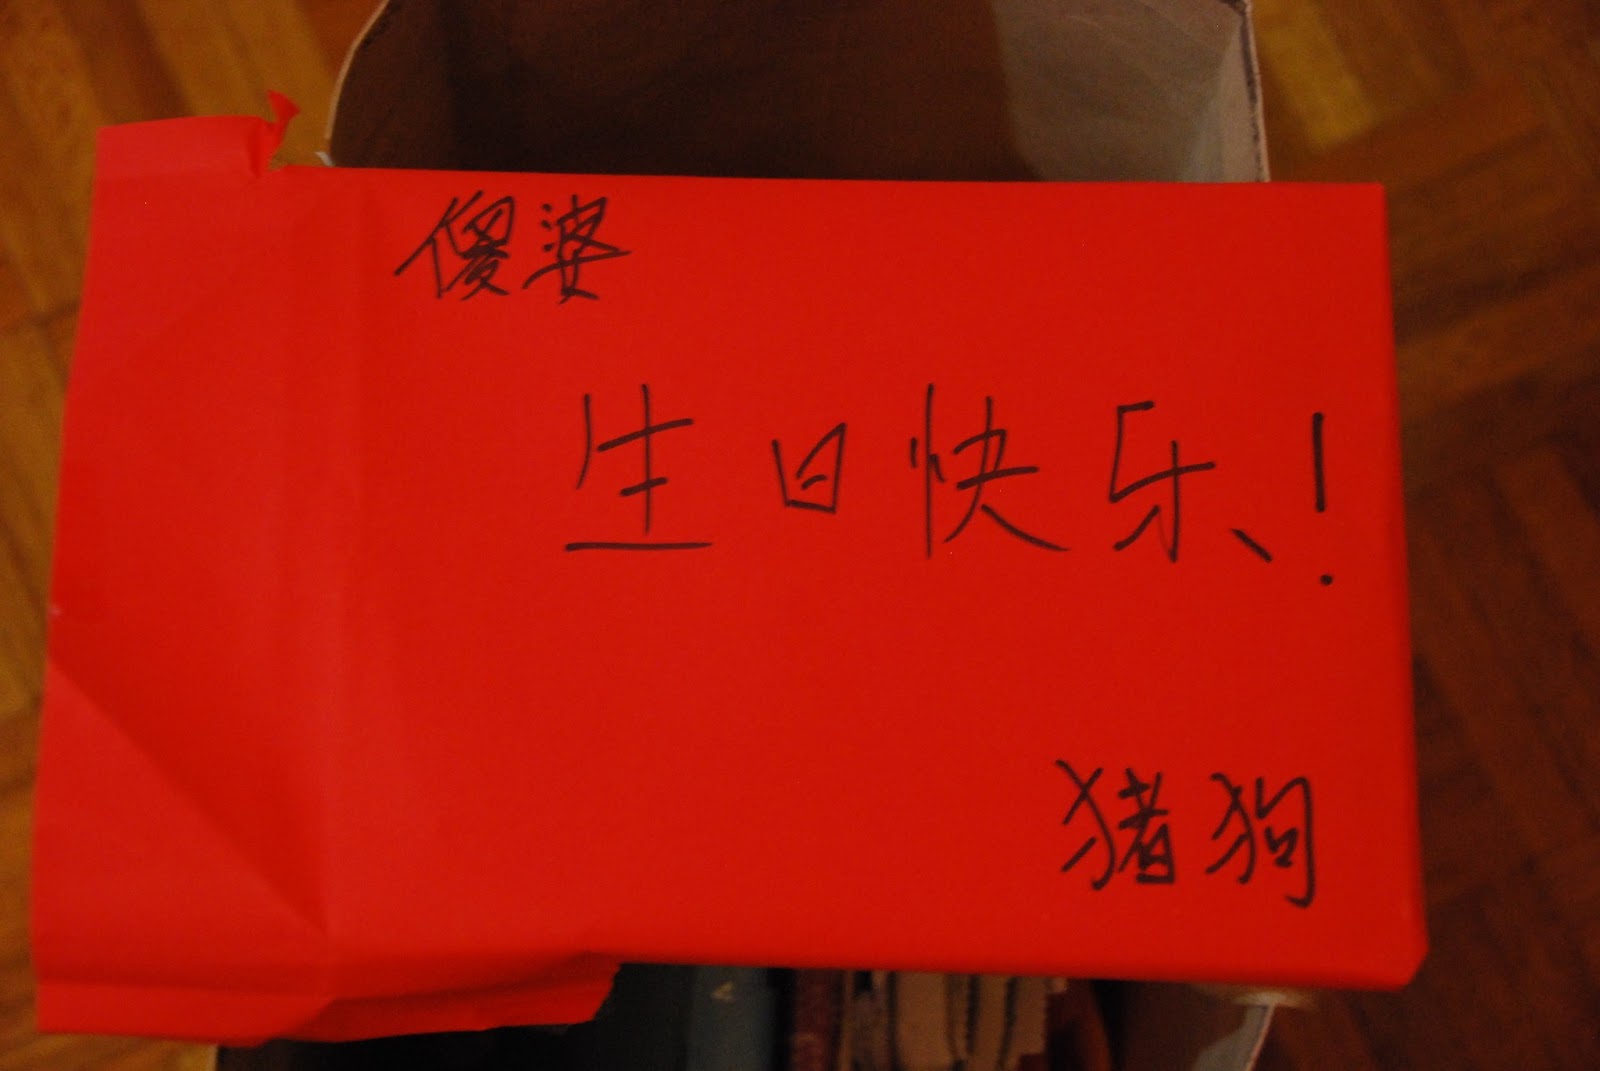 傻婆
生日快乐!
猪狗